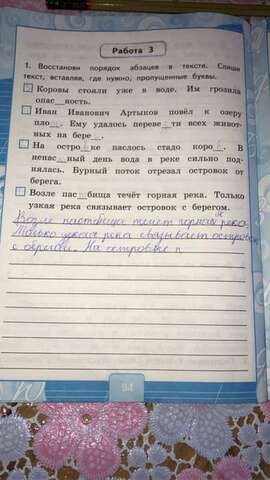 Работа 3
1. Восстанови порядок абзацев в тексте. Спиши
текст, вставляя, где нужно, пропущенные буквы.
Коровы стояли уже в воде. Им грозила
опас_ность.
Иван Иванович Артыков повёл к озеру
пло_. Ему удалось переве_ти всех живот-
ных на бере_.
На остро_ке паслось стадо коро_. В
ненас_ный день вода в реке сильно под-
нялась. Бурный поток отрезал островок от
берега.
Возле пас_бища течёт горная река. Только
узкая река связывает островок с берегом.
Возле пастбища течёт горная река
Только узкая река связывает островок
с берегом. На островке п
94